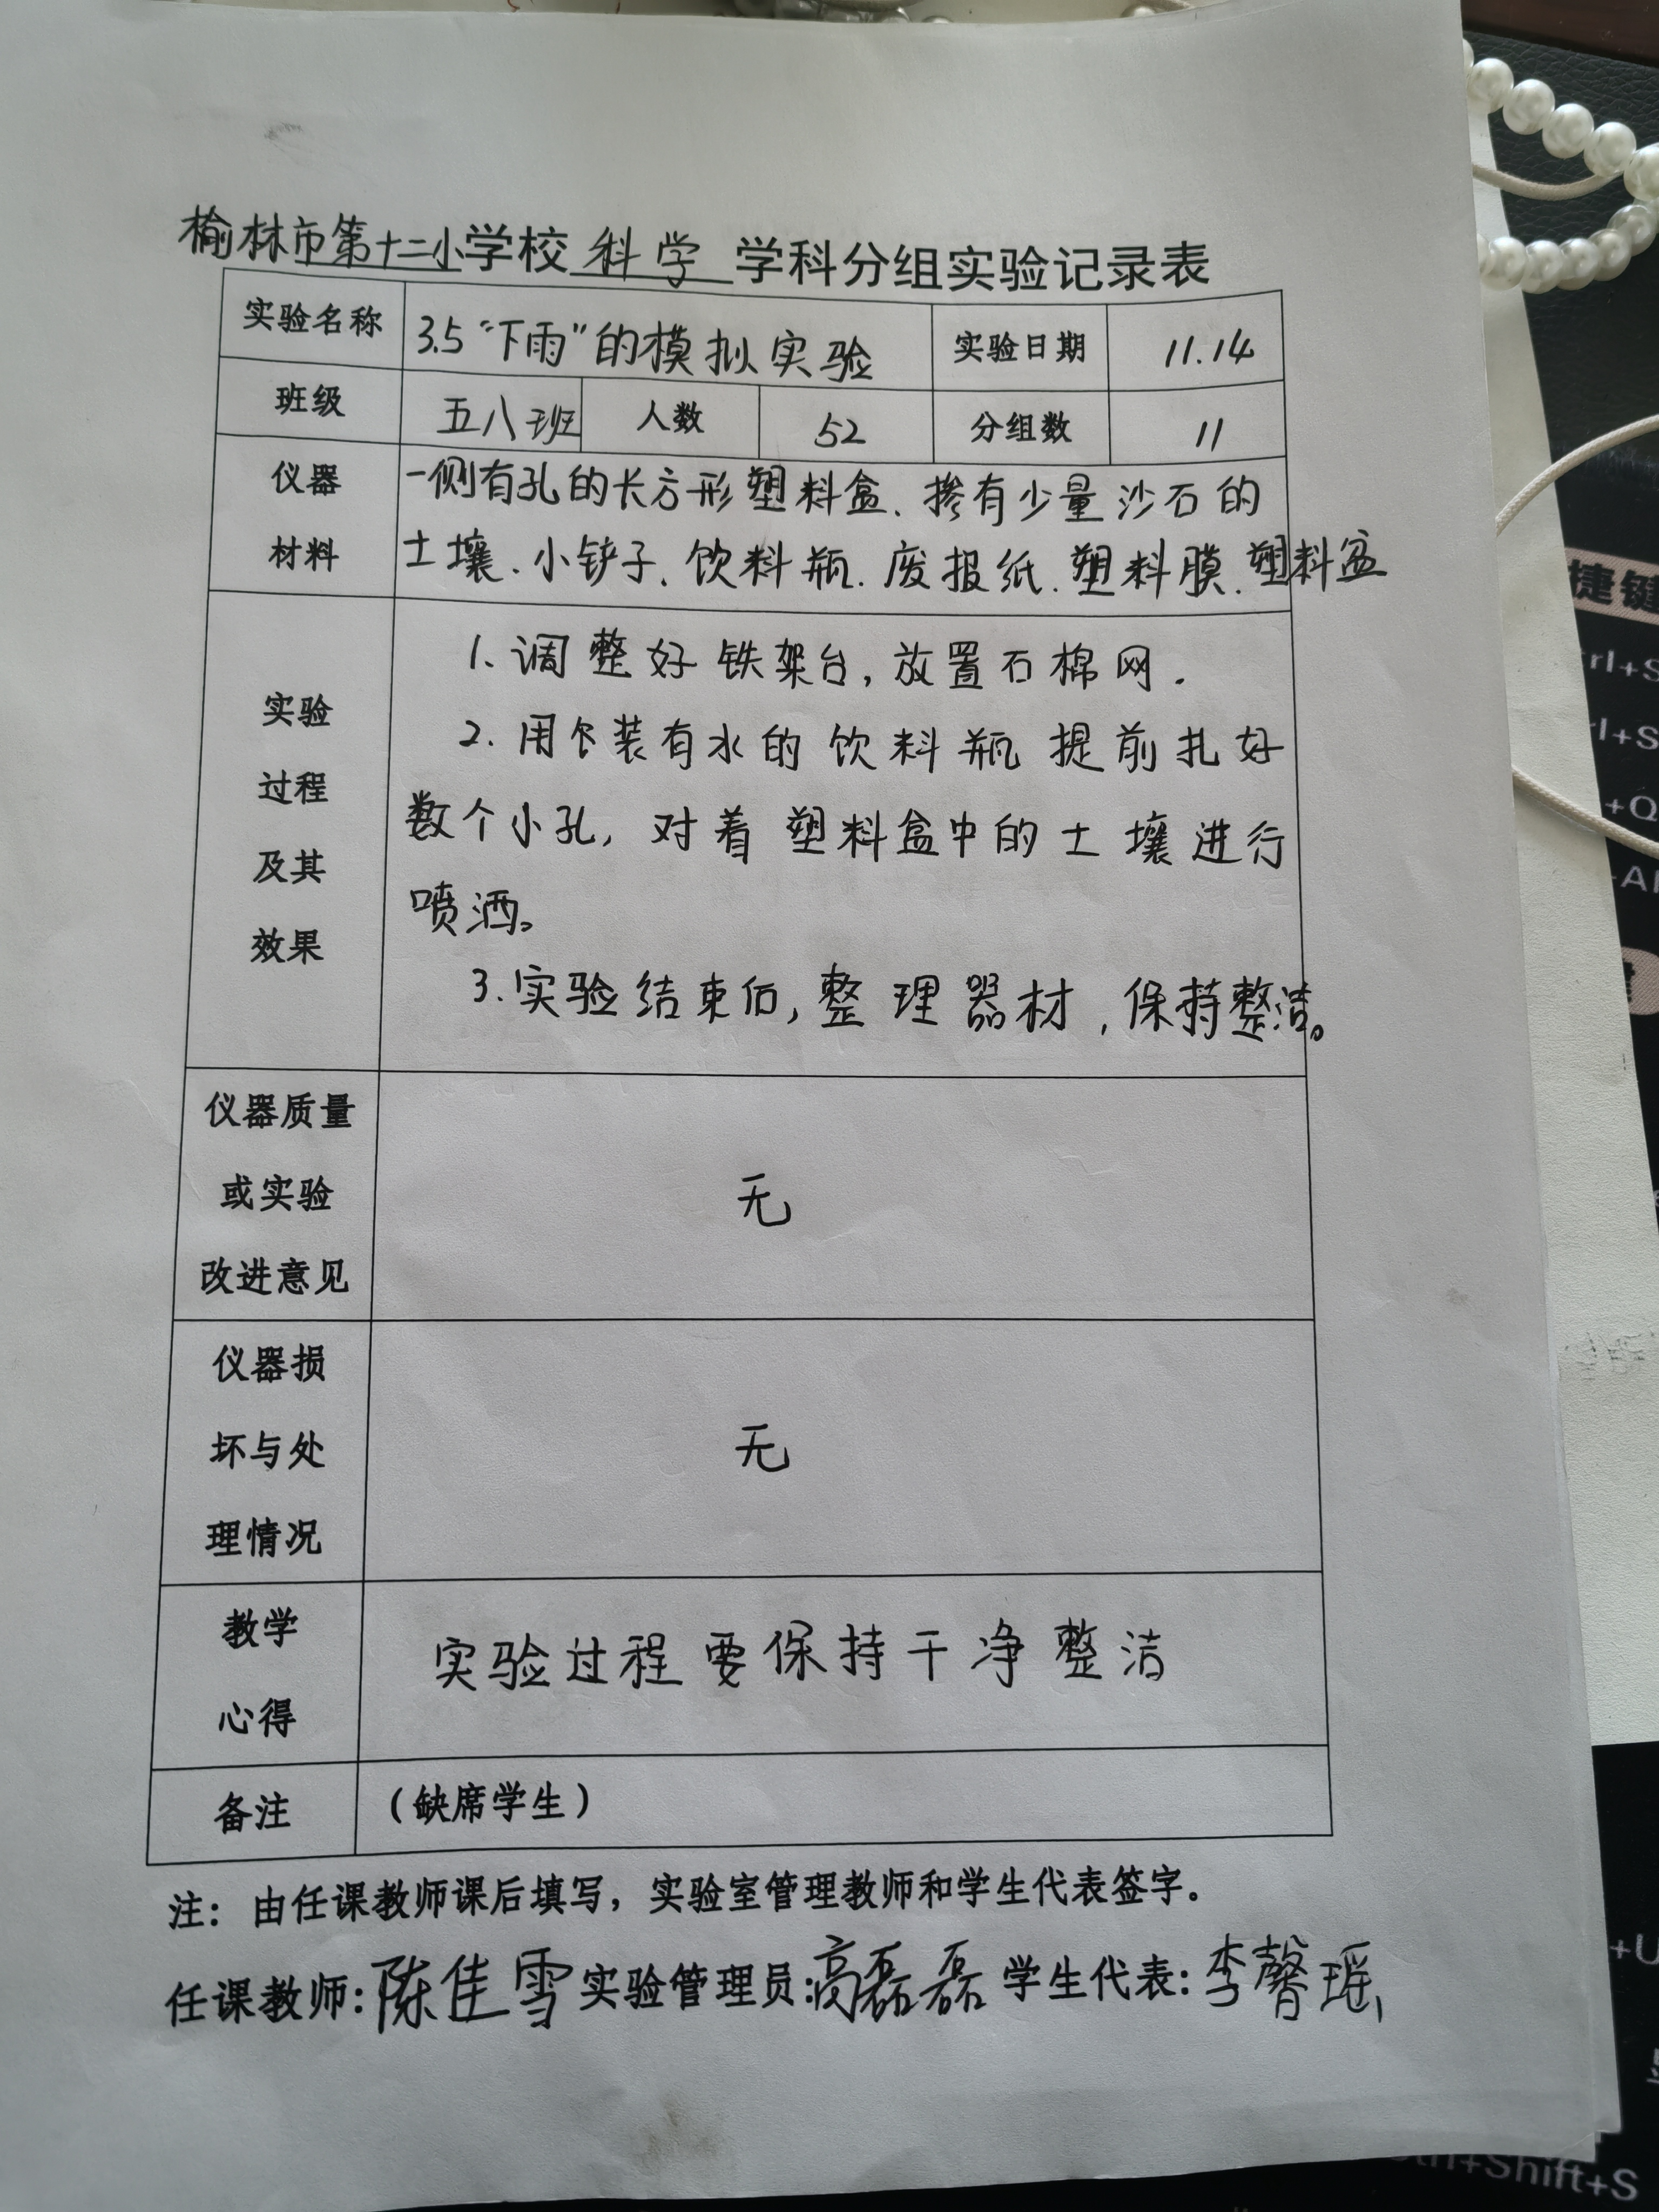 榆林市第十二小学校 科学 学科分组实验记录表
实验名称 3.5“下雨”的模拟实验 实验日期 11.14
班级 五八班 人数 52 分组数 11
仪器 一侧有孔的长方形塑料盒、掺有少量沙石的
材料 土壤、小铲子、饮料瓶、废报纸、塑料膜、塑料盆
实验
过程
及其
效果
1. 调整好铁架台,放置石棉网.
2. 用装有水的饮料瓶提前扎好
数个小孔, 对着塑料盒中的土壤进行
喷洒。
3. 实验结束后, 整理器材, 保持整洁。
仪器质量
或实验
改进意见
无
仪器损
坏与处
理情况
无
教学
心得
实验过程要保持干净整洁
备注 (缺席学生)
注: 由任课教师课后填写,实验室管理教师和学生代表签字。
任课教师:陈佳雪 实验管理员:高磊磊 学生代表:李馨瑶
捷键
+Q
Shift+S